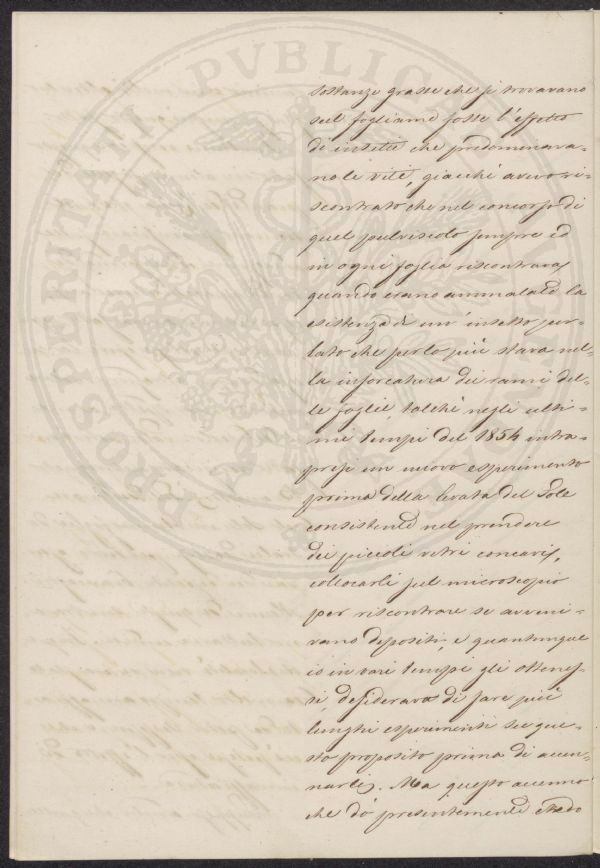 PROSPERITATI PVBLICAE
sostanze grasse che si trovavano
sul fogliame fosse l'effetto
di insetti che predominava-
no le viti, giacchè avevo ri-
scontrato che nel concorso di
quel pulviscolo sempre ed
in ogni foglia riscontravasi
quando erano ammalate la
esistenza di un' insetto
lato che per lo più stava nel-
la inforcatura dei rami del-
le foglie, talchè negli ulti-
mi tempi del 1854 intra-
presi un nuovo esperimento
prima della levata del Sole
consistente nel prendere
dei piccoli vetri concavi,
collocarli sul microscopio
per riscontrare se avveni-
vano depositi, e quantunque
io in vari tempi gli ottenes-
si, desiderava di fare più
lunghi esperimenti su que-
sto proposito prima di accen-
narli. Ma questo accenno
che do presentemente credo